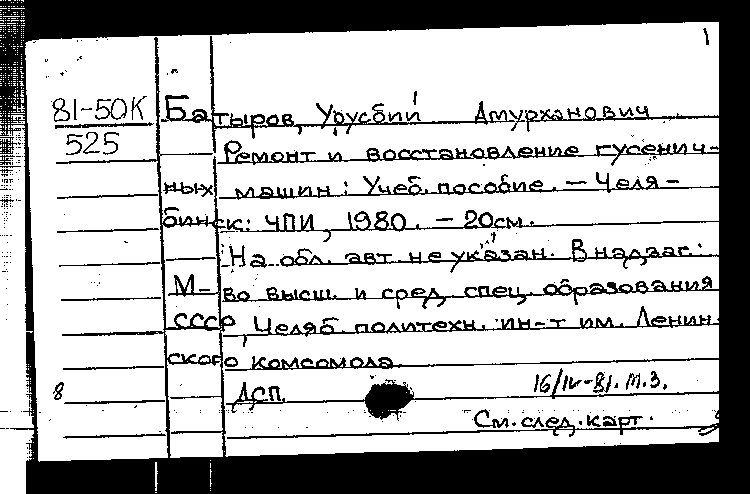 1
81-50К Батыров, Урусбий Амурханович
525 Ремонт и восстановление гусенич-
ных машин: Учеб. пособие. — Челя-
бинск: ЧПИ, 1980. — 20см.
На обл. авт. не указан. В надзаг.:
М-во высш. и сред. спец. образования
СССР, Челяб. политехн. ин-т им. Ленин
ского комсомола.
8 ДСП. 16/IV-81. М.З.
См. след. карт.